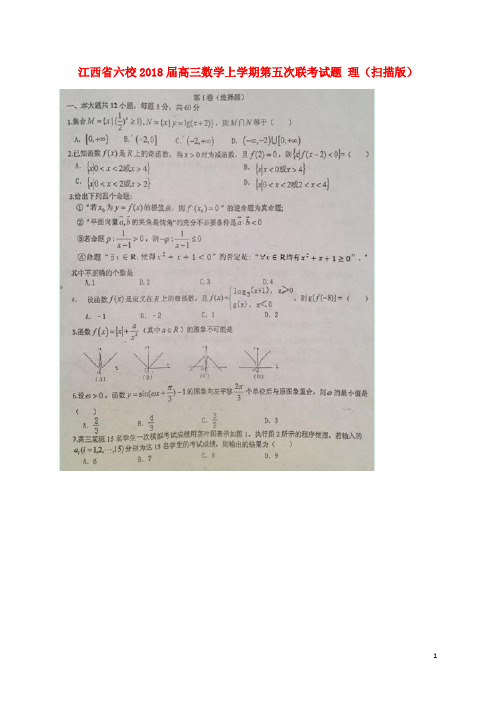 江西省六校2018届高三数学上学期第五次联考试题 理（扫描版）
第1卷（选择题）
一、本大题共12小题，每题5分，共60分
1.集合M={x|(1/2)^x≥1},N={x|y=lg(x+2)}，则M∩N等于（ ）
A. [0,+∞) B. (-2,0] C. (-2,+∞) D. (-∞,-2)∪[0,+∞)
2.已知函数f(x)是R上的奇函数，当x>0时为减函数，且f(2)=0，则{x|f(x-2)<0}=（ ）
A. {x|0<x<2或x>4} B. {x|x<0或x>4}
C. {x|0<x<2或x>2} D. {x|0<x<2或2<x<4}
3.给出下列四个命题:
①"若x₀为y=f(x)的极值点，则f'(x₀)=0"的逆命题为真命题;
②"平面向量a,b的夹角是钝角"的充分不必要条件是a·b<0
③若命题p:1/(x-1)>0，则¬p:1/(x-1)≤0
④命题"∃x∈R,使得x²+x+1<0"的否定是:"∀x∈R均有x²+x+1≥0"。
其中不正确的个数是
A.1 B.2 C.3 D.4
4. 设函数f(x)是定义在R上的奇函数，且f(x)={log₃(x+1), x≥0 g(x), x<0，则g[f(-8)]=（ ）
A. -1 B. -2 C. 1 D. 2
5.函数f(x)=|x|+a/x²（其中a∈R）的图象不可能是
(A) (B) (C) (D)
6.设ω>0，函数y=sin(ωx+π/3)-1的图象向左平移2π/3个单位后与原图象重合，则ω的最小值是
（ ）
A. 2/3 B. 4/3 C. 3/2 D. 3
7.高三某班15名学生一次模拟考试成绩用茎叶图表示如图1，执行图2所示的程序框图，若输入的
aᵢ(i=1,2,⋯,15)分别为这15名学生的考试成绩，则输出的结果为（ ）
A. 6 B. 7 C. 8 D. 9
1